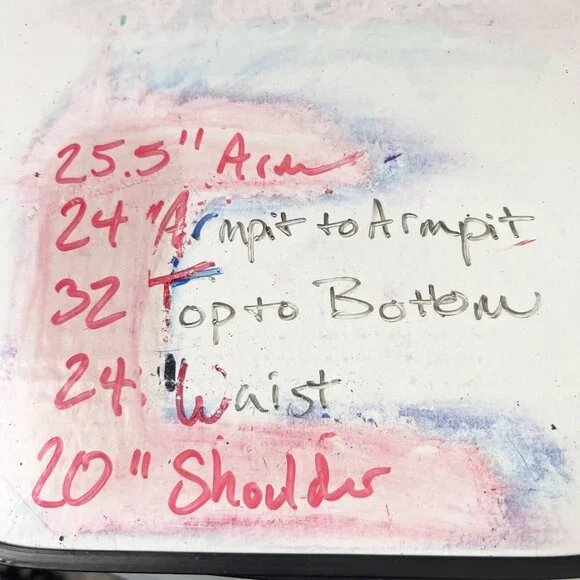 25.5" Arm
24 "Armpit to Armpit
32 Top to Bottom
24 "Waist
20" Shoulder